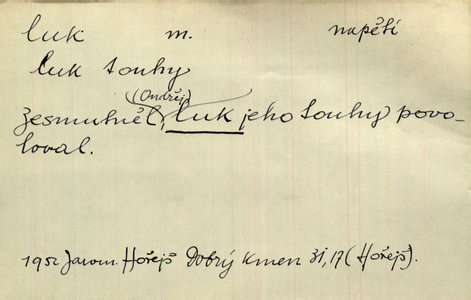 luk m. napětí
luk touhy
(Ondřej)
Zesmutněl, luk jeho touhy povo-
loval.
1952 Jarom. Hořejš Dobrý kmen 31, 17 (Hořejš).